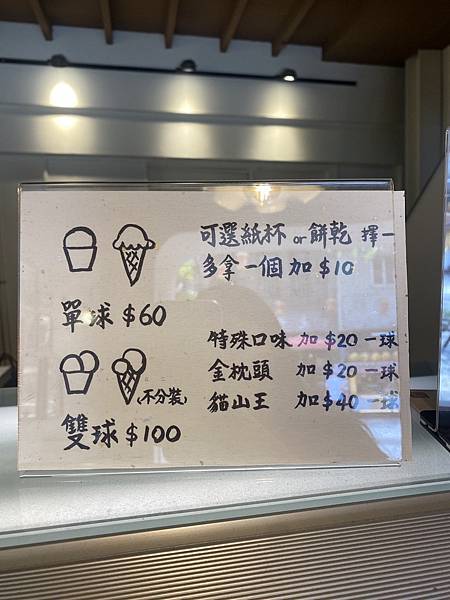 可選紙杯 or 餅乾 擇一
多拿一個 加 $10
單球 $60
特殊口味 加 $20 一球
金枕頭 加 $20 一球
貓山王 加 $40 一球
(不分裝)
雙球 $100